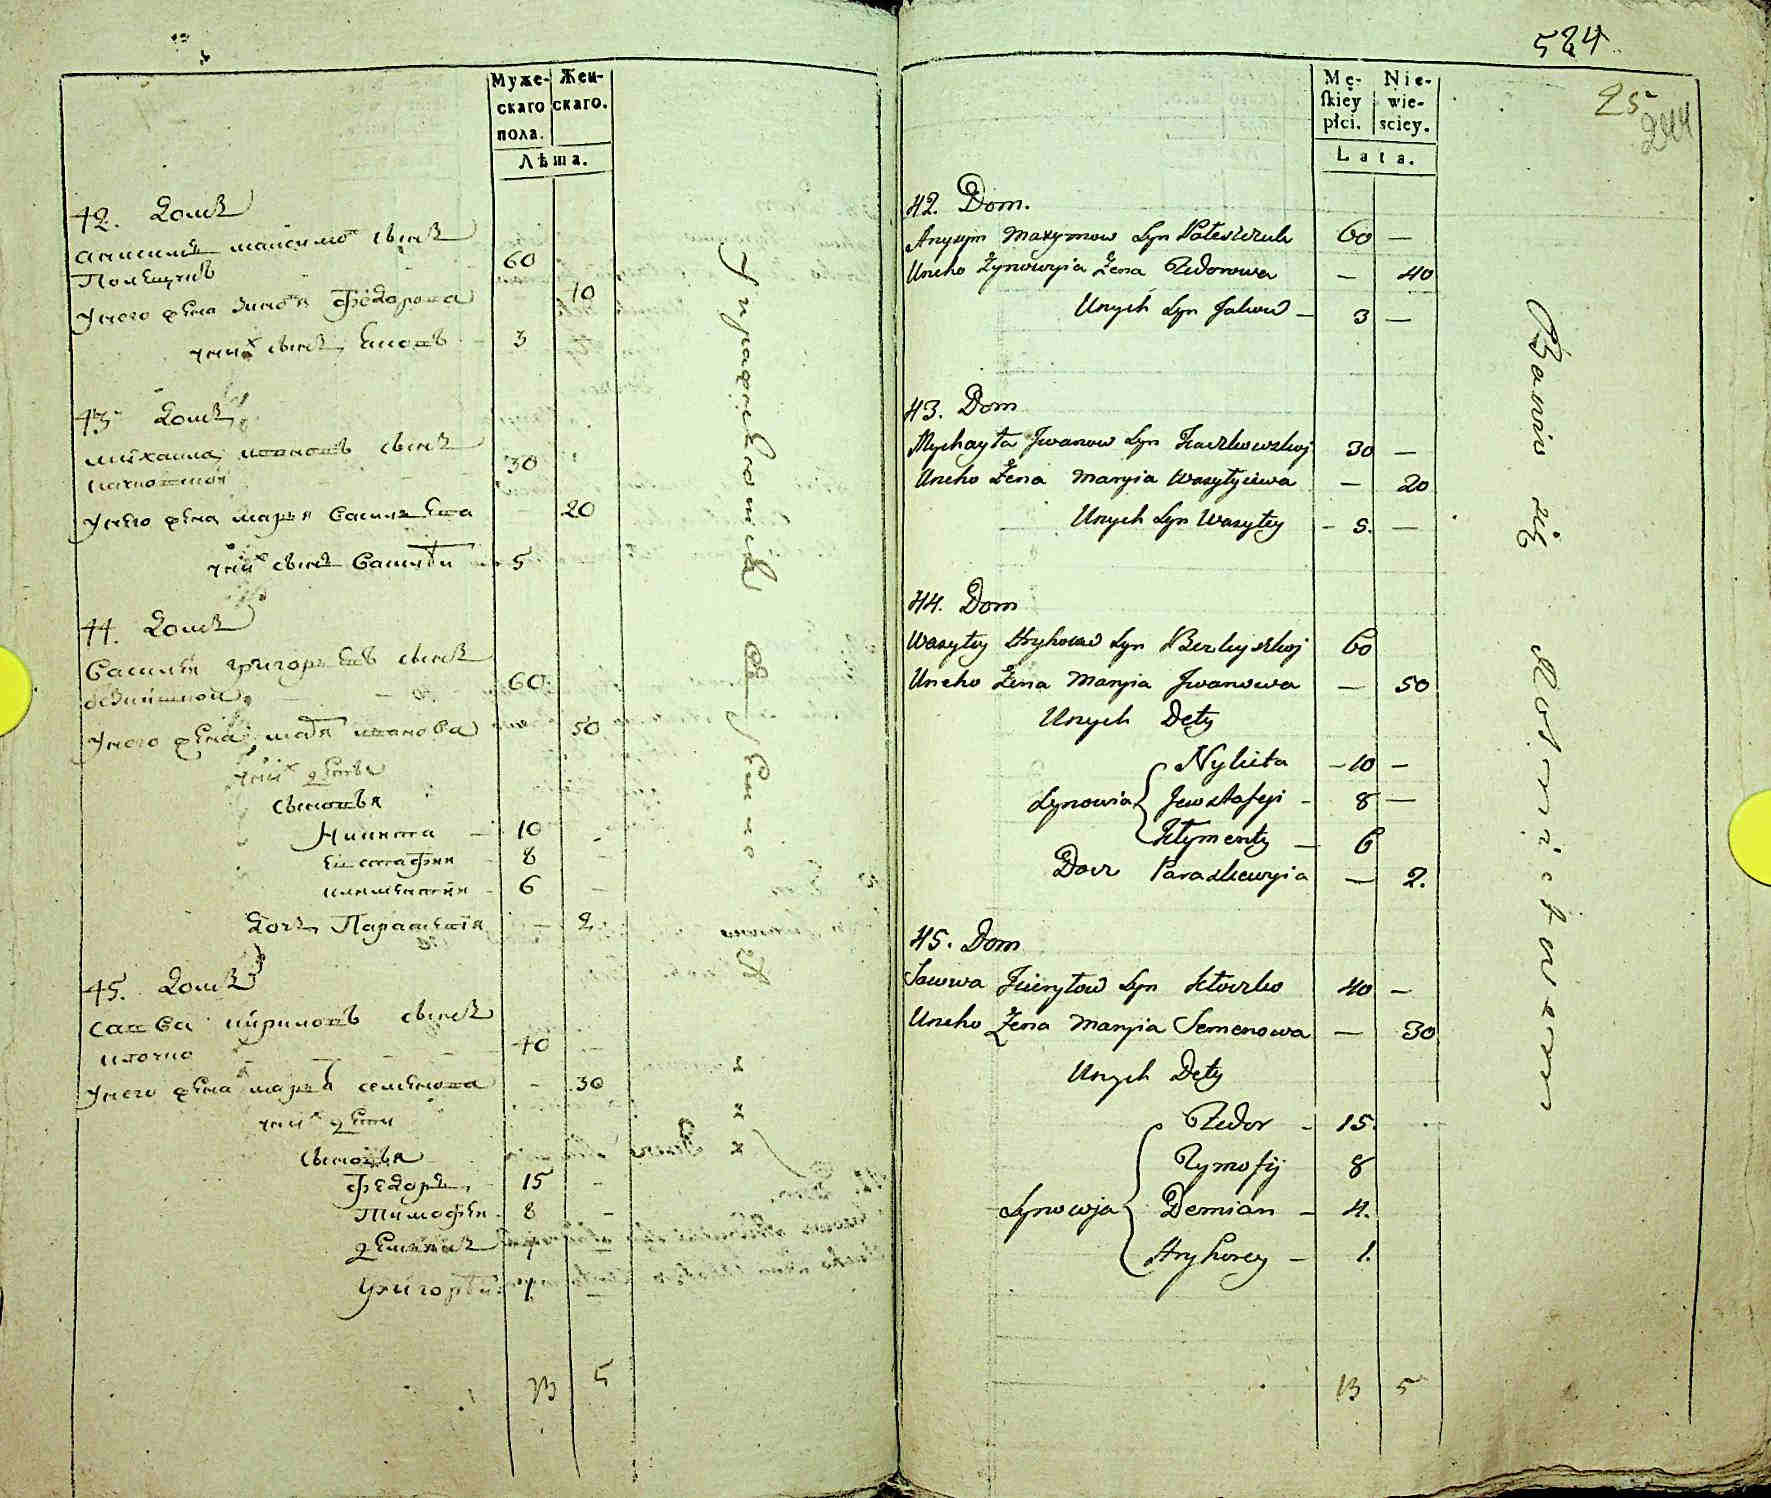 Муже-
скаго
пола.
Жен-
скаго.
Лѣта.
42. Домъ
Анисимъ Максимовъ сынъ 60
Полещукъ
Унего жена Зиновія Федорова 40
унихъ сынъ Яковъ 3
43 Домъ
Михаила Ивановъ сынъ 30
Унего жена Марья Василева 20
унихъ сынъ Василѣй 5
44. Домъ
Василей Григорьевъ сынъ 60
Унего жена Марья Иванова 50
унихъ дѣти
сыновья
Никита 10
Евстафій 8
Климентій 6
дочь Параскевія 2
45. Домъ
Савва Кириловъ сынъ 40
Клочко
Унего жена Марья Семенова 30
унихъ дѣти
сыновья
Федоръ 15
Тимофей 8
Демянъ 4
Григорѣй 1
13 5
Упражняютца
524
25
244
Mę-
skiey
płci.
Nie-
wie-
sciey.
Lata.
42. Dom.
Anysym Maxymow Syn Poleszczuk 60 —
Uneho Żynowyia Żena Fedorowa — 40
Unych Syn Jakow — 3 —
43. Dom
Mychayła Iwanow Syn 30 —
Uneho Żena Maryia Wasyłyiewa — 20
Unych Syn Wasyley - 5. —
44. Dom
Wasyley Hryhorow Syn 60
Uneho Żena Maryia Iwanowa — 50
Unych Dety
Nykita — 10 —
Synowia Jewstafyi - 8 —
Kłymenty — 6
Docz Paraskewyia — 2.
45. Dom
Sawwa Kiryłow Syn Kłoczko 40 —
Uneho Żena Maryia Semenowa — 30
Unych Dety
Fedor - 15.
Tymofij 8
Synowja Demian - 4.
Hryhorey - 1.
13 5
Bawio się Rolnictwem